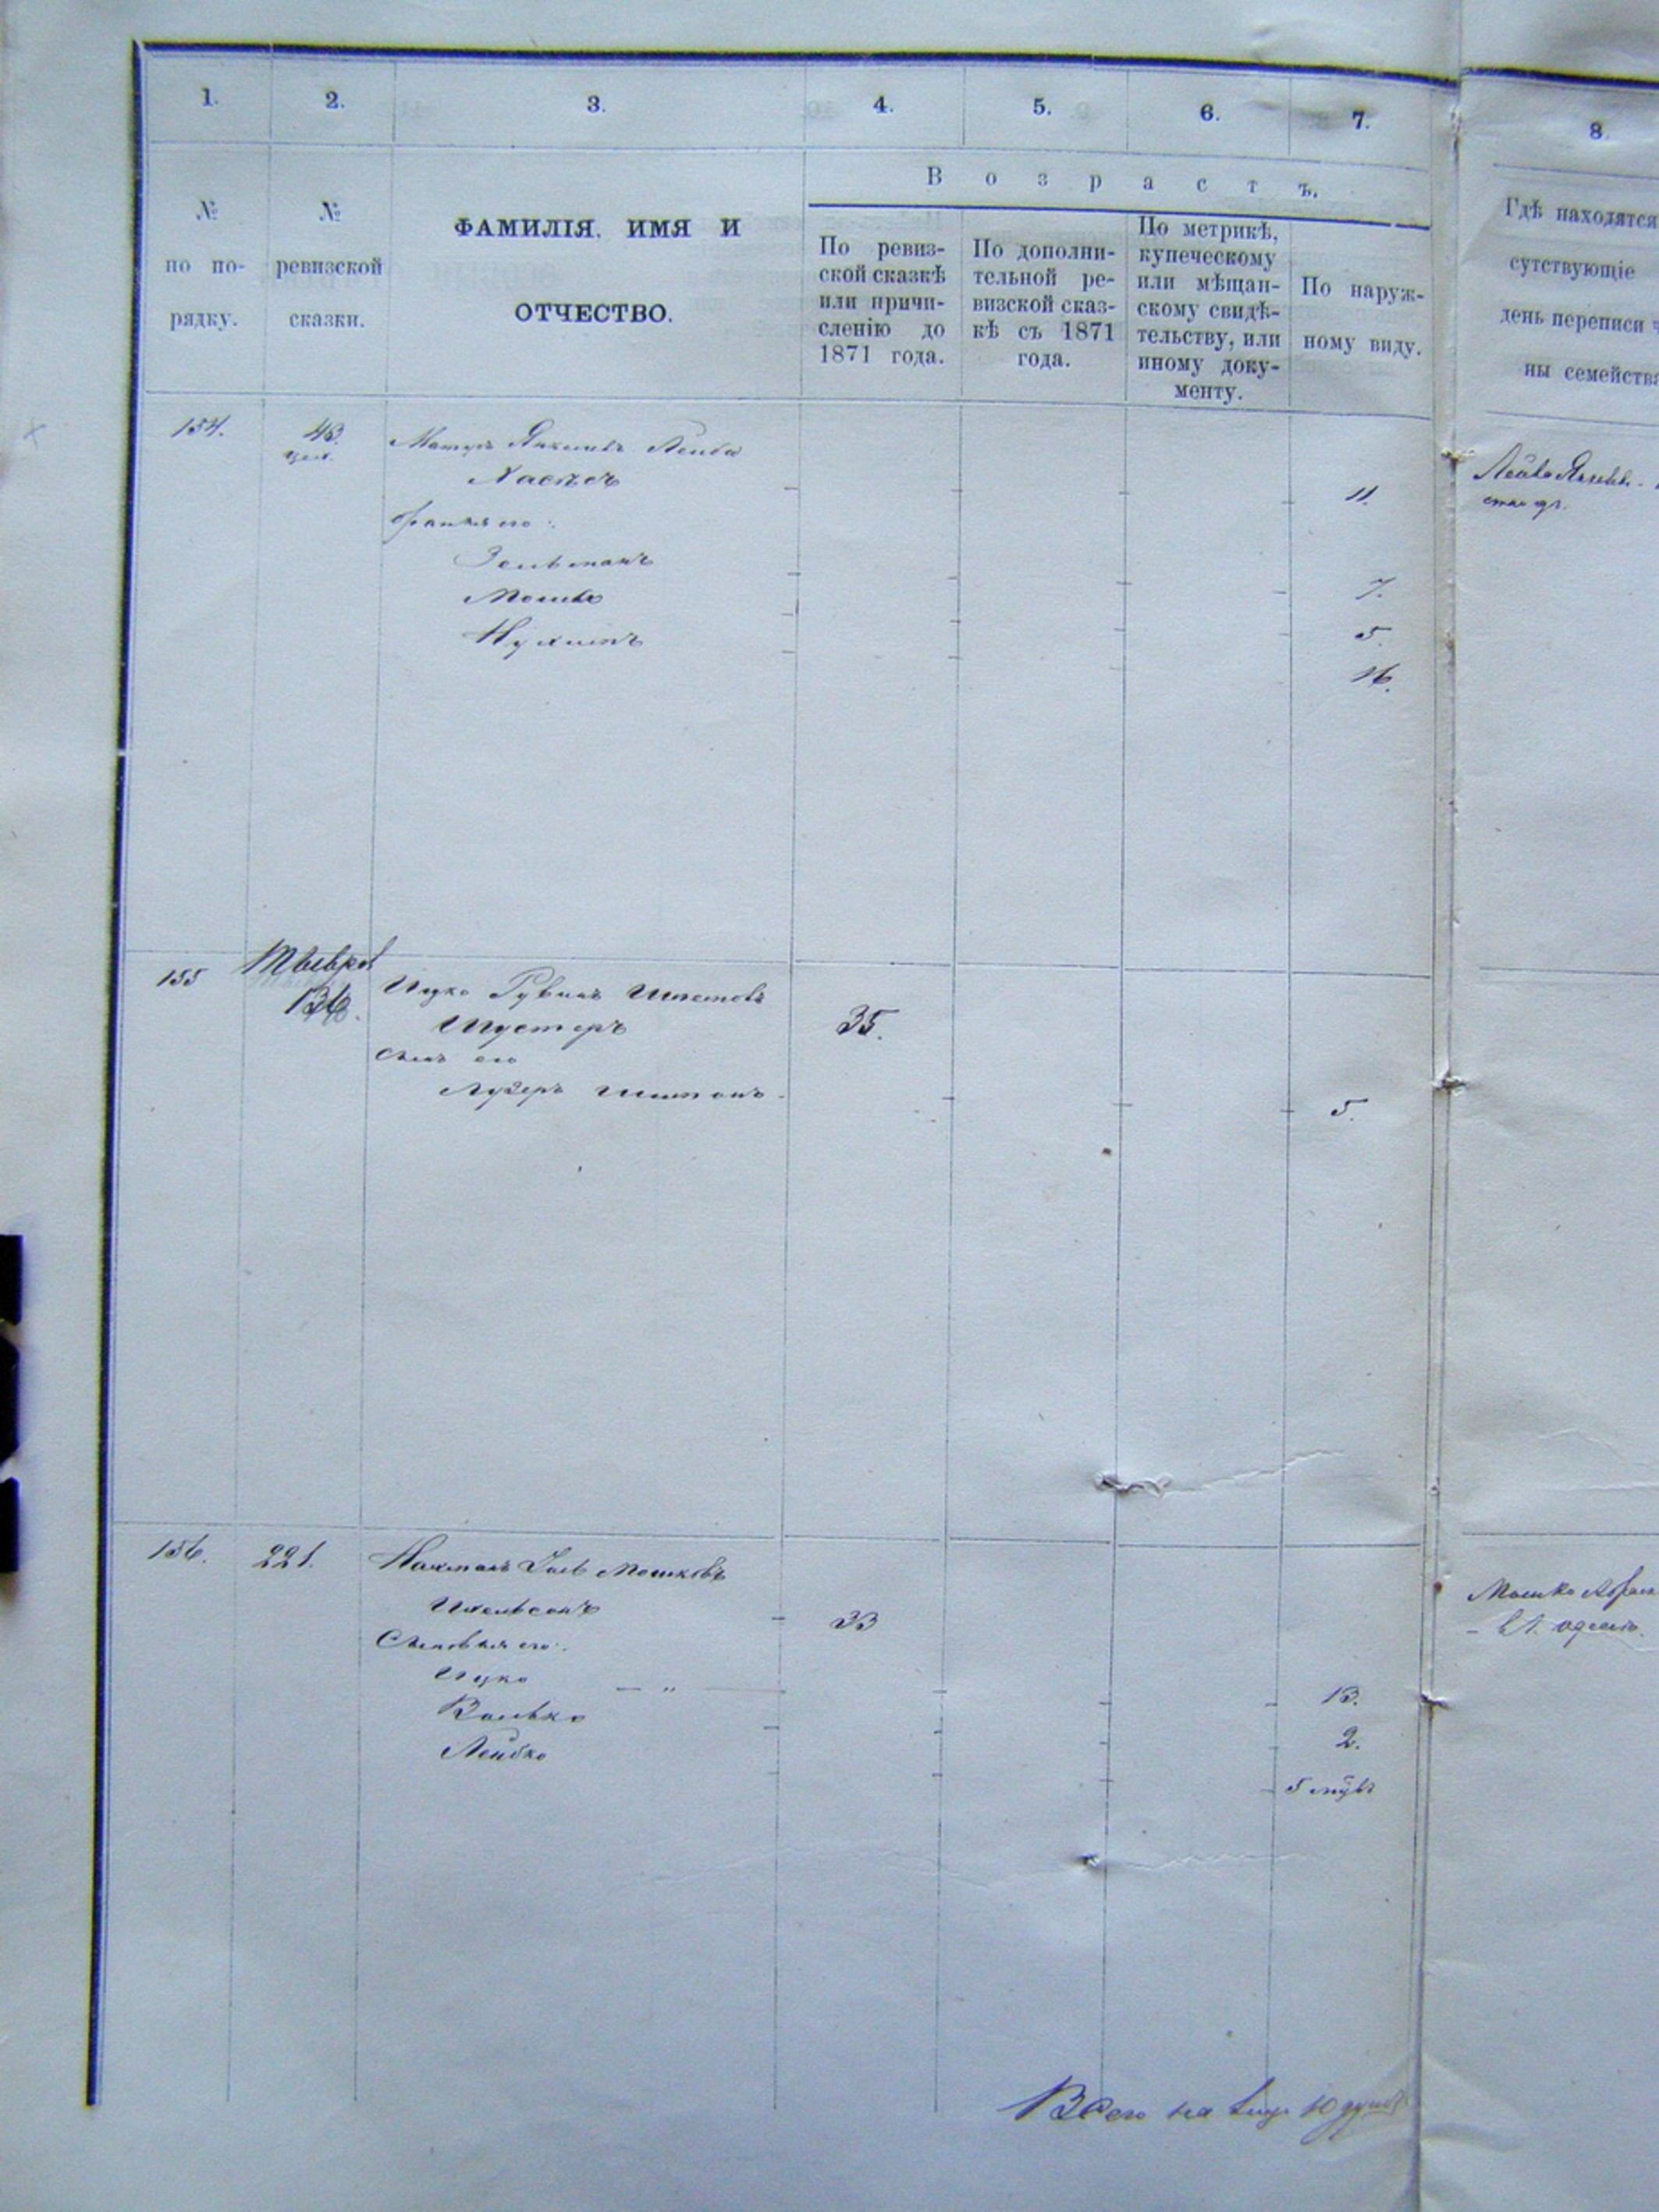 1.
2.
3.
4.
5.
6.
7.
8.
№ по по-
рядку.
№ ревизской
сказки.
ФАМИЛІЯ, ИМЯ И
ОТЧЕСТВО.
Возрастъ.
По ревиз-
ской сказкѣ
или причи-
сленію до
1871 года.
По дополни-
тельной ре-
визской сказ-
кѣ съ 1871
года.
По метрикѣ,
купеческому
или мѣщан-
скому свидѣ-
тельству, или
иному доку-
менту.
По наруж-
ному виду.
Гдѣ находятся
сутствующіе
день переписи ч
ны семейства
154.
43.
Лейба
11.
братья его:
Зельманъ
7.
Мошко
5.
Нухимъ
16.
155
Тывров
136.
Ицко Рувинъ
Шустеръ
35.
Сынъ его
Лузеръ
5.
156.
221.
Нахманъ Мошковъ
33
Сыновья его:
Ицко — „ —
13.
Волько
2.
Лейбко
5
Мошко
Всего на лицо 10 душъ